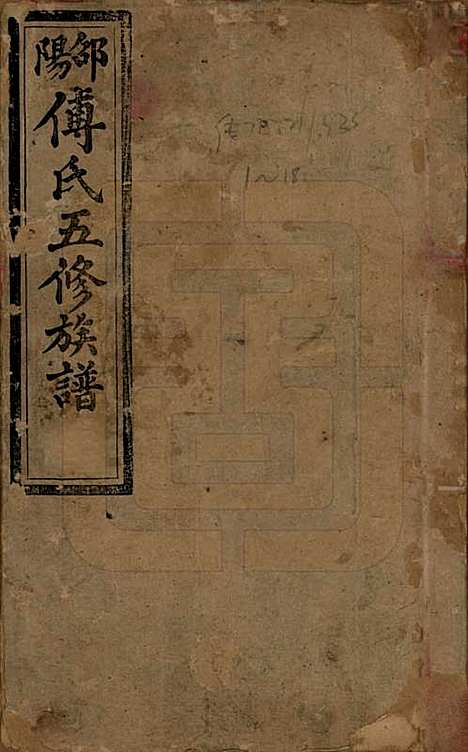 邵陽
傅氏五修族譜
1~18